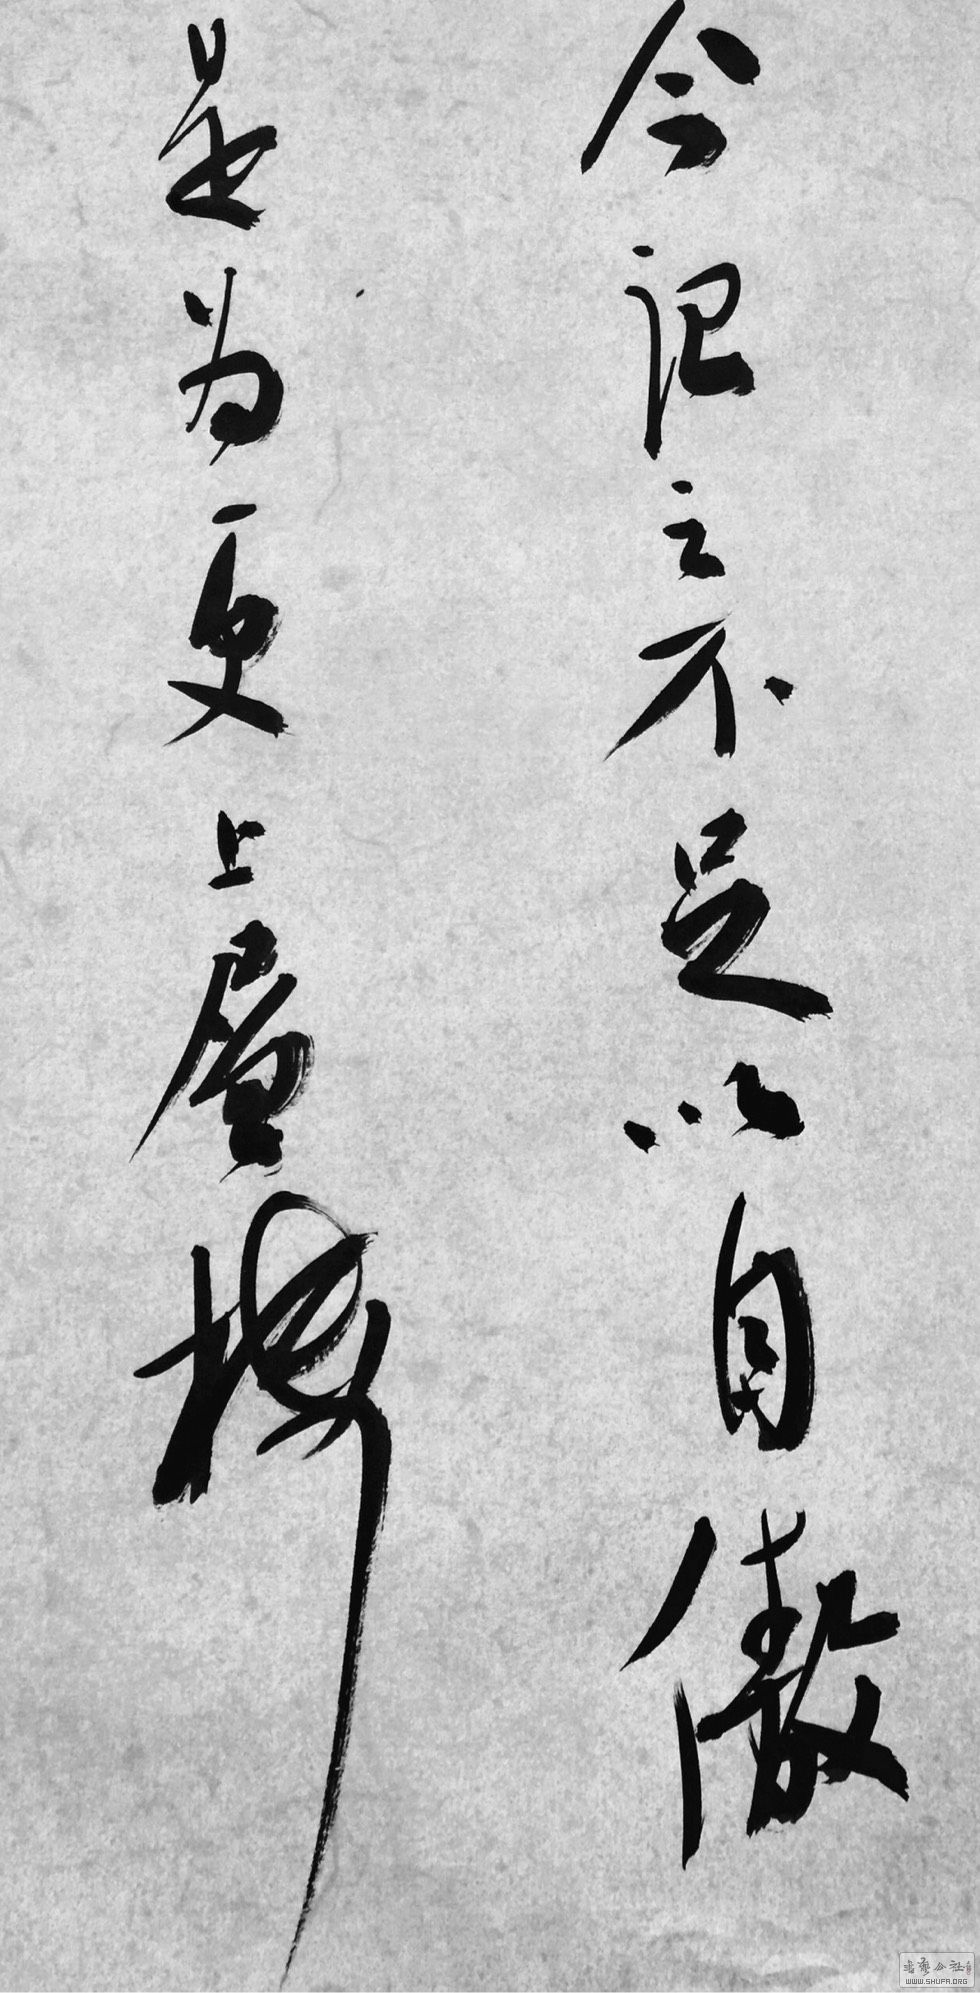 今记之不足以自傲
是为更上层楼
书艺公社
WWW.SHUFA.ORG